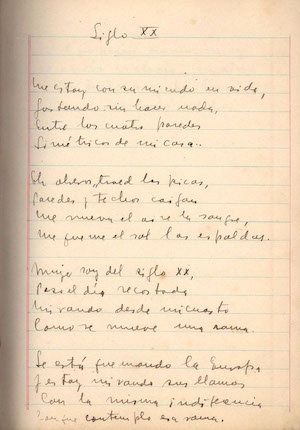 Siglo XX
Me estoy consumiendo en vida,
Gastando sin hacer nada,
Entre las cuatro paredes
Simétricas de mi casa.
Eh obreros, traed las picas,
Paredes y techos caigan
Me mueva el aire la sangre,
Me queme el sol las espaldas.
Mujer soy del siglo XX,
Paso el día recostada
Mirando desde mi cuarto
Como se mueve una rama.
Se está quemando la Europa
Y estoy mirando sus llamas
Con la misma indiferencia
Con que contemplo esa rama.